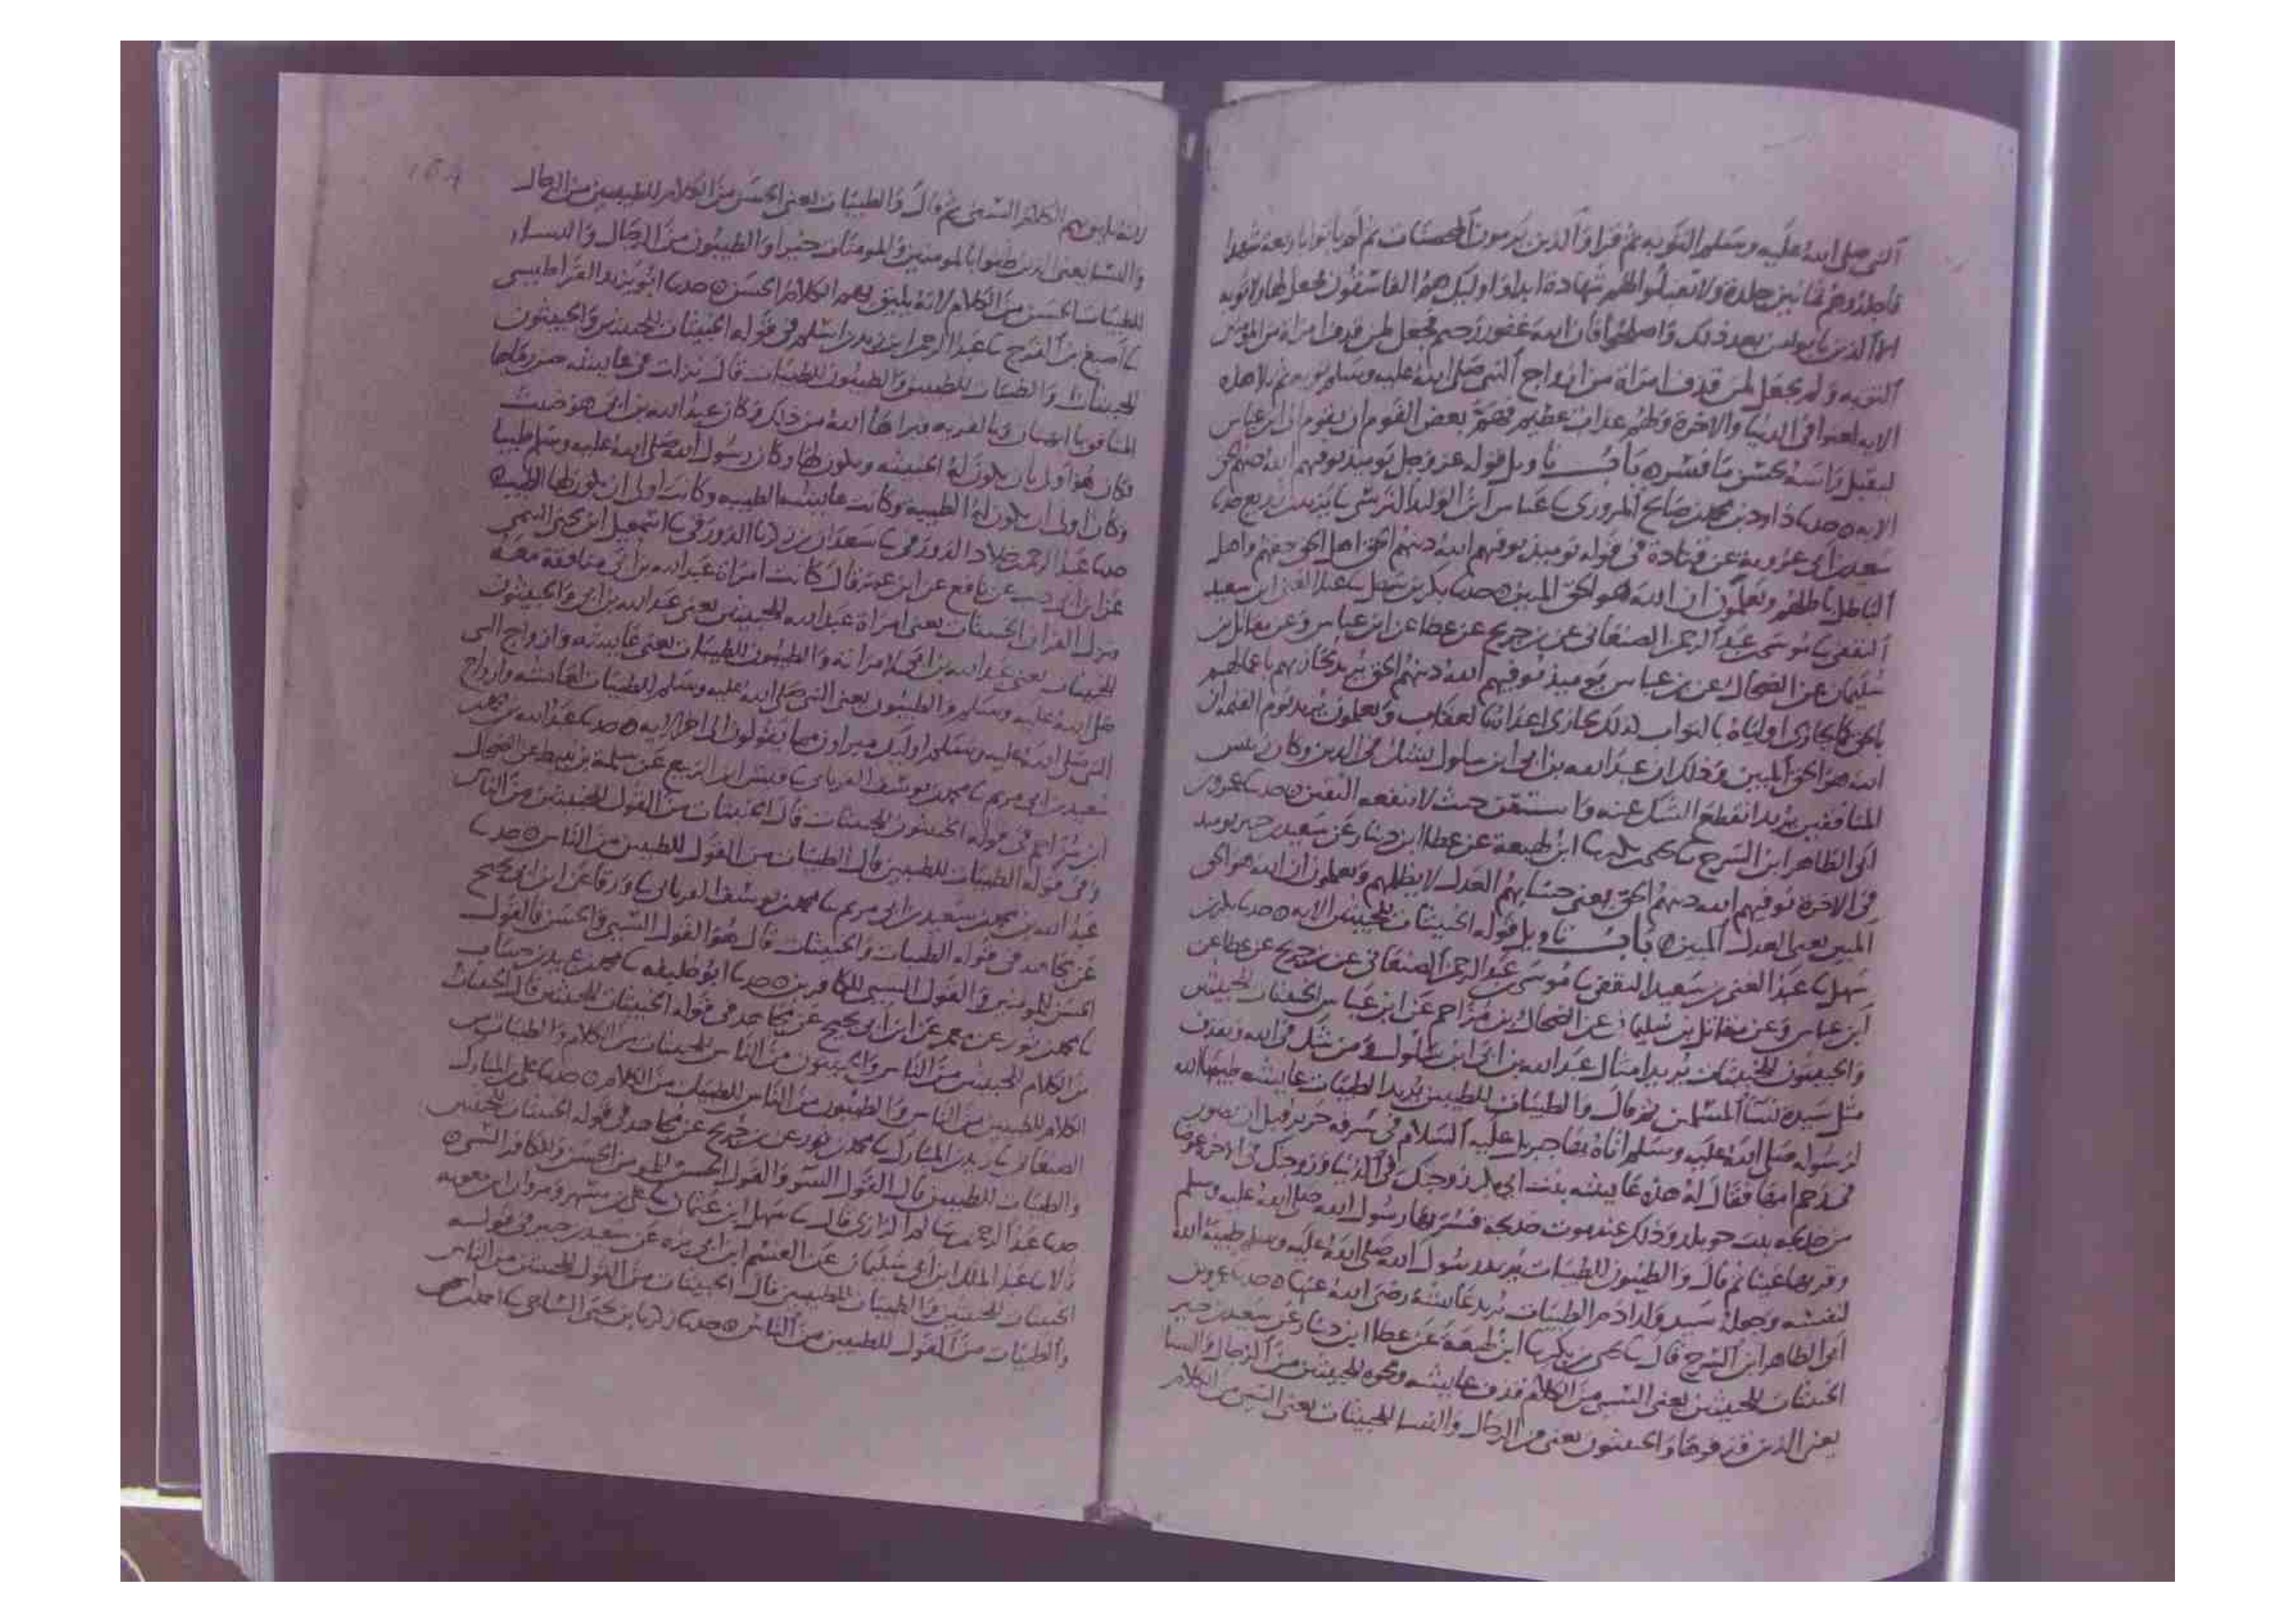 النبي صلى الله عليه وسلم التوبه ثم قرا والذين يرمون المحصنات ثم لم ياتوا باربعة شهدا
فاجلدوهم ثمانين جلدة ولا تقبلوا لهم شهادة ابدا واوليك هم الفاسقون فجعل لهاولا توبه
الا الذين تابوا من بعد ذلك واصلحوا فان الله غفور رحيم فجعل لمن قذف امراة من المومنين
التوبه ولم يجعل لمن قذف امراة من ازواج النبي صلى الله عليه وسلم توبه ثم تلا هذه
الايه لعنوا في الدنيا والاخرة ولهم عذاب عظيم فهم بعض القوم ان يقوم الى ابن عباس
ليقبل راسه لحسن ما فسره باب تاويل قوله عز وجل يوميذ يوفيهم الله دينهم الحق
الايه ه حدثنا داود بن محمد بن صالح المروزي ثنا عباس ابن الوليد النرسي ثنا يزيد بن زريع حدثنا
سعيد بن ابي عروبة عن قتادة في قوله يوميذ يوفيهم الله دينهم الحق اهل الحق حقهم واهل
الباطل باطلهم ويعلمون ان الله هو الحق المبين ه حدثنا بكر بن سهل ثنا عبد الغني ابن سعيد
الثقفي ثنا موسى بن عبد الرحمن الصنعاني عن بن جريج عن عطا عن ابن عباس وعن مقاتل بن
سليمان عن الضحاك عن بن عباس يوميذ يوفيهم الله دينهم الحق يريد يجازيهم باعمالهم
بالحق كما يجازي اولياه بالثواب كذلك يجازي اعداه بالعقاب ويعلمون يريد يوم القيمه ان
الله هو الحق المبين وذلك ان عبد الله بن ابي ابن سلول يشك في الدين وكان ريس
المنافقين يريد انقطع الشك عنه واستيقن حيث لا ينفعه اليقين ه حدثنا عمرو بن
ابي الطاهر ابن السرح ثنا يحيى بن بكير ثنا ابن لهيعة عن عطا ابن دينار عن سعيد بن جبير يوميذ
في الاخرة يوفيهم الله دينهم الحق يعني حسابهم العدل لا يظلمهم ويعلمون ان الله هو الحق
المبين يعني العدل المبين ه باب تاويل قوله الخبيثات للخبيثين الايه ه حدثنا بكر بن
سهل ثنا عبد الغني بن سعيد الثقفي ثنا موسى بن عبد الرحمن الصنعاني عن بن جريج عن عطا عن
ابن عباس وعن مقاتل بن سليمان عن الضحاك بن مزاحم عن ابن عباس الخبيثات للخبيثين
والخبيثون للخبيثات يريد امثال عبد الله بن ابي ابن سلول ومن شك في الله ويقذف
مثل سيدة نسا المسلمين ثم قال والطيبات للطيبين يريد الطيبات عايشه طيبها الله
لرسوله صلى الله عليه وسلم اتاه بها جبريل عليه السلام في سرقه حرير قبل ان تصور
في رحم امها فقال له هذه عايشه بنت ابي بكر زوجتك في الدنيا وزوجتك في الاخرة عوضا
من خديجه بنت خويلد وذلك عند موت خديجه فسر بها رسول الله صلى الله عليه وسلم
وقر بها عينا ثم قال والطيبون للطيبات يريد رسول الله صلى الله عليه وسلم طيبه الله
لنفسه وجعله سيد ولد ادم والطيبات يريد عايشه رضي الله عنها ه حدثنا عمرو بن
ابي الطاهر ابن السرح قال ثنا يحيى بن بكير ثنا ابن لهيعة عن عطا ابن دينار عن سعيد بن جبير
الخبيثات للخبيثين يعني السيي من الكلام قذف عايشه ونحوه للخبيثين من الرجال والنسا
يعني الذين قذفوها والخبيثون يعني من الرجال والنسا للخبيثات يعني السيي من الكلام
لانه يليق بهم الكلام السيي ثم قال والطيبات يعني الحسن من الكلام للطيبين من الرجال
والنسا يعني الذين ظنوا بالمومنين والمومنات خيرا والطيبون من الرجال والنسا
للطيبات الحسن من الكلام لانه يليق بهم الكلام الحسن ه حدثنا ابو يزيد القراطيسي
ثنا اصبغ بن الفرج ثنا عبد الرحمن بن زيد بن اسلم في قوله الخبيثات للخبيثين والخبيثون
للخبيثات والطيبات للطيبين والطيبون للطيبات قال نزلت في عايشه حين رماها
المنافق بالبهتان والفريه فبراها الله من ذلك وكان عبد الله بن ابي هو خبيث
وكان هو اولى بان تكون له الخبيثه ويكون لها وكان رسول الله صلى الله عليه وسلم طيبا
وكان اولى ان تكون له الطيبه وكانت عايشه الطيبه وكانت اولى ان يكون لها الطيب ه
حدثنا عبد الرحمن بن خلاد الدورقي ثنا سعدان بن زكريا الدورقي ثنا اسمعيل ابن يحيى التيمي
عن ابن ابي ذيب عن نافع عن ابن عمر قال كانت امراة عبد الله بن ابي منافقة معه
فنزل القران الخبيثات يعني امراة عبد الله للخبيثين يعني عبد الله بن ابي والخبيثون
للخبيثات يعني عبد الله بن ابي لامراته والطيبون للطيبات يعني عايشه وازواج النبي
صلى الله عليه وسلم والطيبون يعني النبي صلى الله عليه وسلم للطيبات لعايشه وازواج
النبي صلى الله عليه وسلم اوليك مبراون مما يقولون الى اخر الايه ه حدثنا عبد الله بن محمد بن
سعيد بن ابي مريم ثنا محمد بن يوسف الفريابي ثنا قيس ابن الربيع عن سلمة بن نبيط عن الضحاك
ابن مزاحم في قوله الخبيثون للخبيثات قال الخبيثات من القول للخبيثين من الناس
وفي قوله الطيبات للطيبين قال الطيبات من القول للطيبين من الناس ه حدثنا
عبد الله بن محمد بن سعيد بن ابي مريم ثنا محمد بن يوسف الفريابي ثنا ورقا عن ابن ابي نجيح
عن مجاهد في قوله الطيبات والخبيثات قال هو القول السيي والحسن فالقول
الحسن للمومنين والقول السيي للكافرين ه حدثنا ابو خليفه ثنا محمد بن عبيد بن حساب
ثنا محمد بن ثور عن معمر عن ابن ابي نجيح عن مجاهد في قوله الخبيثات للخبيثين قال الخبيثات
من الكلام للخبيثين من الناس والخبيثون من الناس للخبيثات من الكلام والطيبات من
الكلام للطيبين من الناس والطيبون من الناس للطيبات من الكلام ه حدثنا علي بن المبارك
الصنعاني ثنا زيد بن المبارك ثنا محمد بن ثور عن بن جريج عن مجاهد في قوله الخبيثات للخبيثين
والطيبات للطيبين قال القول السو والقول الحسن للمومن الحسن وللكافر السيي ه
حدثنا عبد الرحمن بن سلم الرازي قال ثنا سهل ابن عثمان ثنا علي بن مسهر ومروان ابن معويه
قالا ثنا عبد الملك ابن ابي سليمان عن القسم ابن ابي بزه عن سعيد بن جبير في قوله
الخبيثات للخبيثين والطيبات للطيبين قال الخبيثات من القول للخبيثين من الناس
والطيبات من القول للطيبين من الناس ه حدثنا زكريا بن يحيى الساجي ثنا